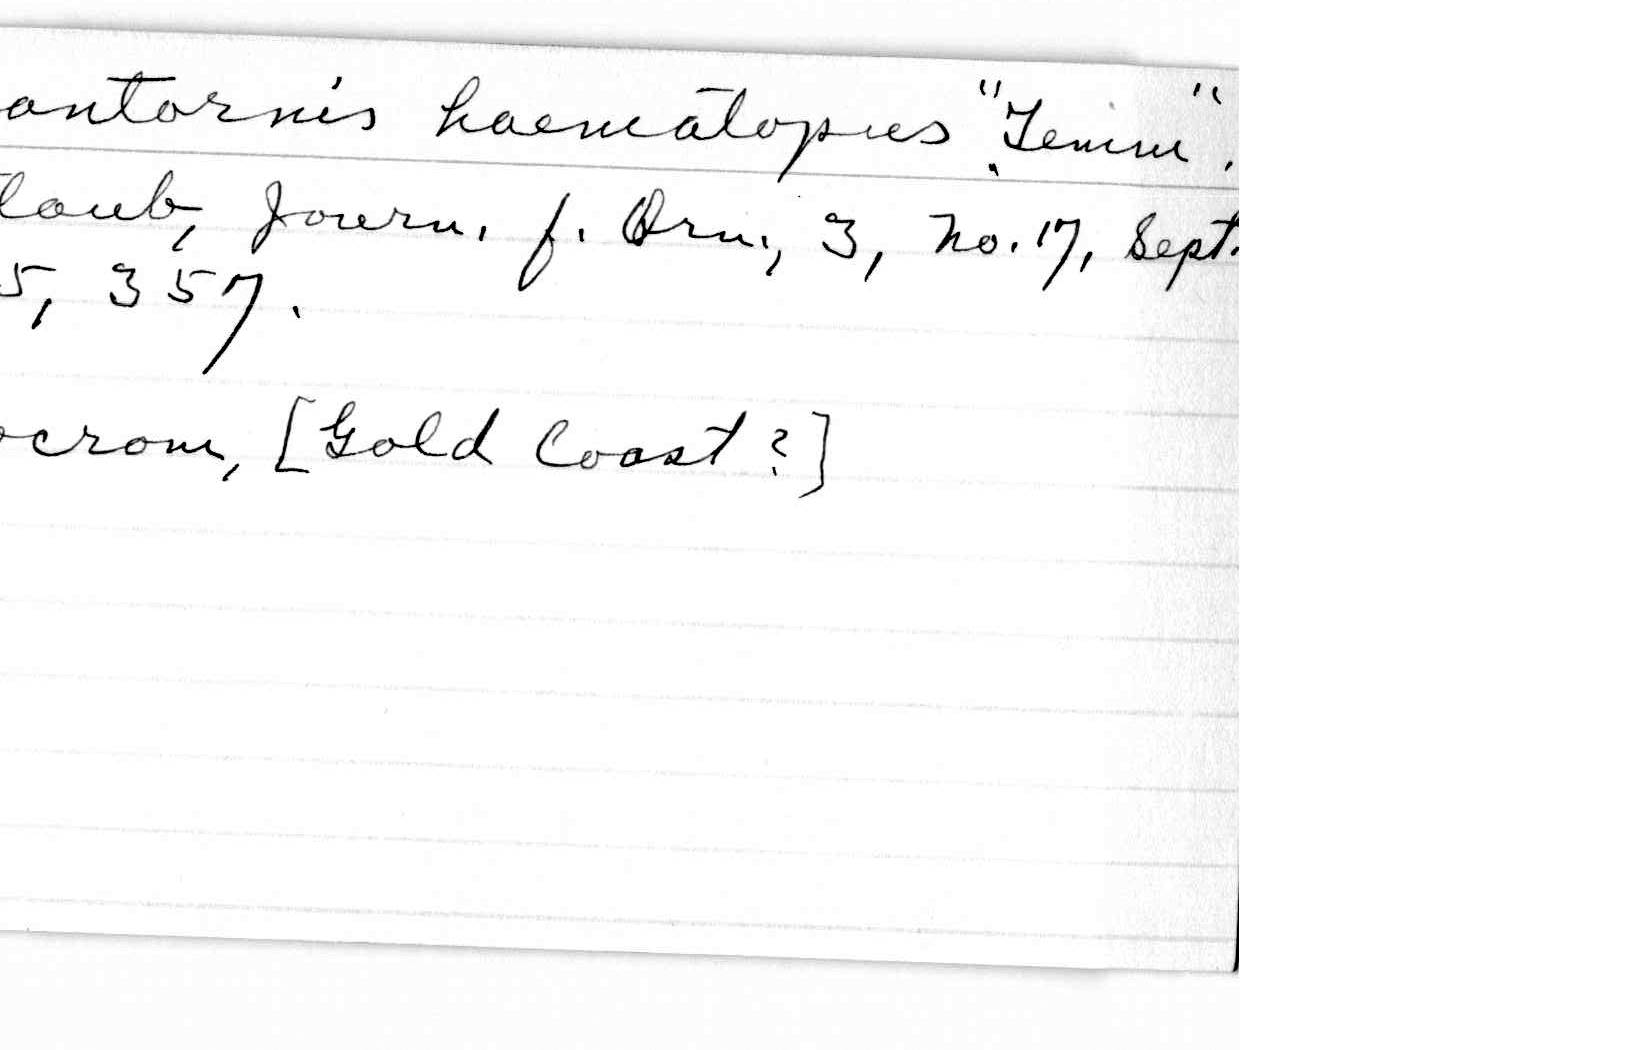 antornis haematopus "Temm".
laub, Journ. f. Orn., 3, No. 17, Sept.
5, 357.
ocrom, [Gold Coast?]